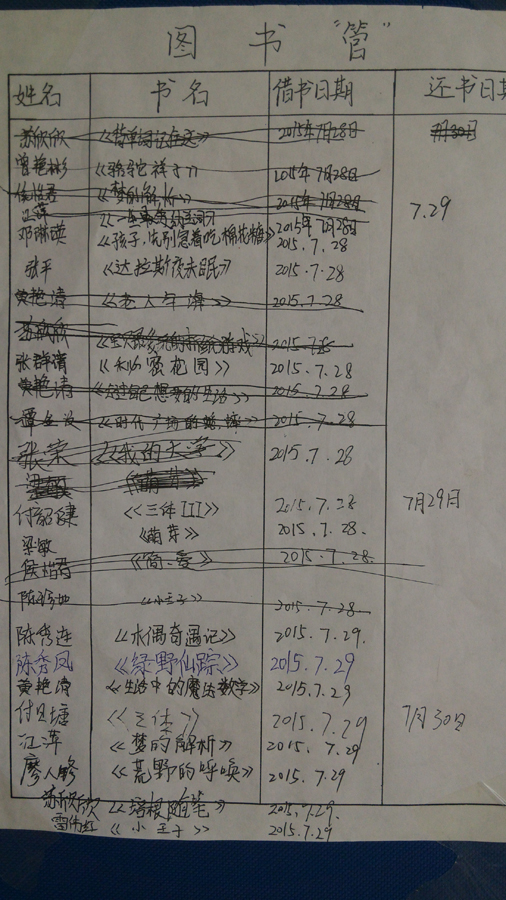 图 书 "管"
姓名 书名 借书日期 还书日期
苏欣欣 2015年7月28日 7月30日
曾艳彬 《骆驼祥子》 2015年7月28日
《梦的解析》 2015年7月28日
江萍 2015年7月28日 7.29
邓琳瑛 《孩子,先别急着吃棉花糖》 2015.7.28
张平 《达拉斯夜未眠》 2015.7.28
黄艳清 《老人与海》 2015.7.28
苏欣欣 2015.7.28
张群清 《秘密花园》 2015.7.28
黄艳清 《过自己想要的生活》 2015.7.28
《时代广场的蟋蟀》 2015.7.28
张荣 《我的大学》 2015.7.28
梁敏 《萌芽》
付韶健 《三体III》 2015.7.28 7月29日
梁敏 《萌芽》 2015.7.28.
《简·爱》 2015.7.28.
《小王子》 2015.7.28
陈秀连 《木偶奇遇记》 2015.7.29.
陈秀凤 《绿野仙踪》 2015.7.29
黄艳清 《生活中的魔法数学》 2015.7.29
《三体》 2015.7.29 7月30日
江萍 《梦的解析》 2015.7.29
廖人锋 《荒野的呼唤》 2015.7.29
苏欣欣 《培根随笔》 2015.7.29.
雷伟红 《小王子》 2015.7.29